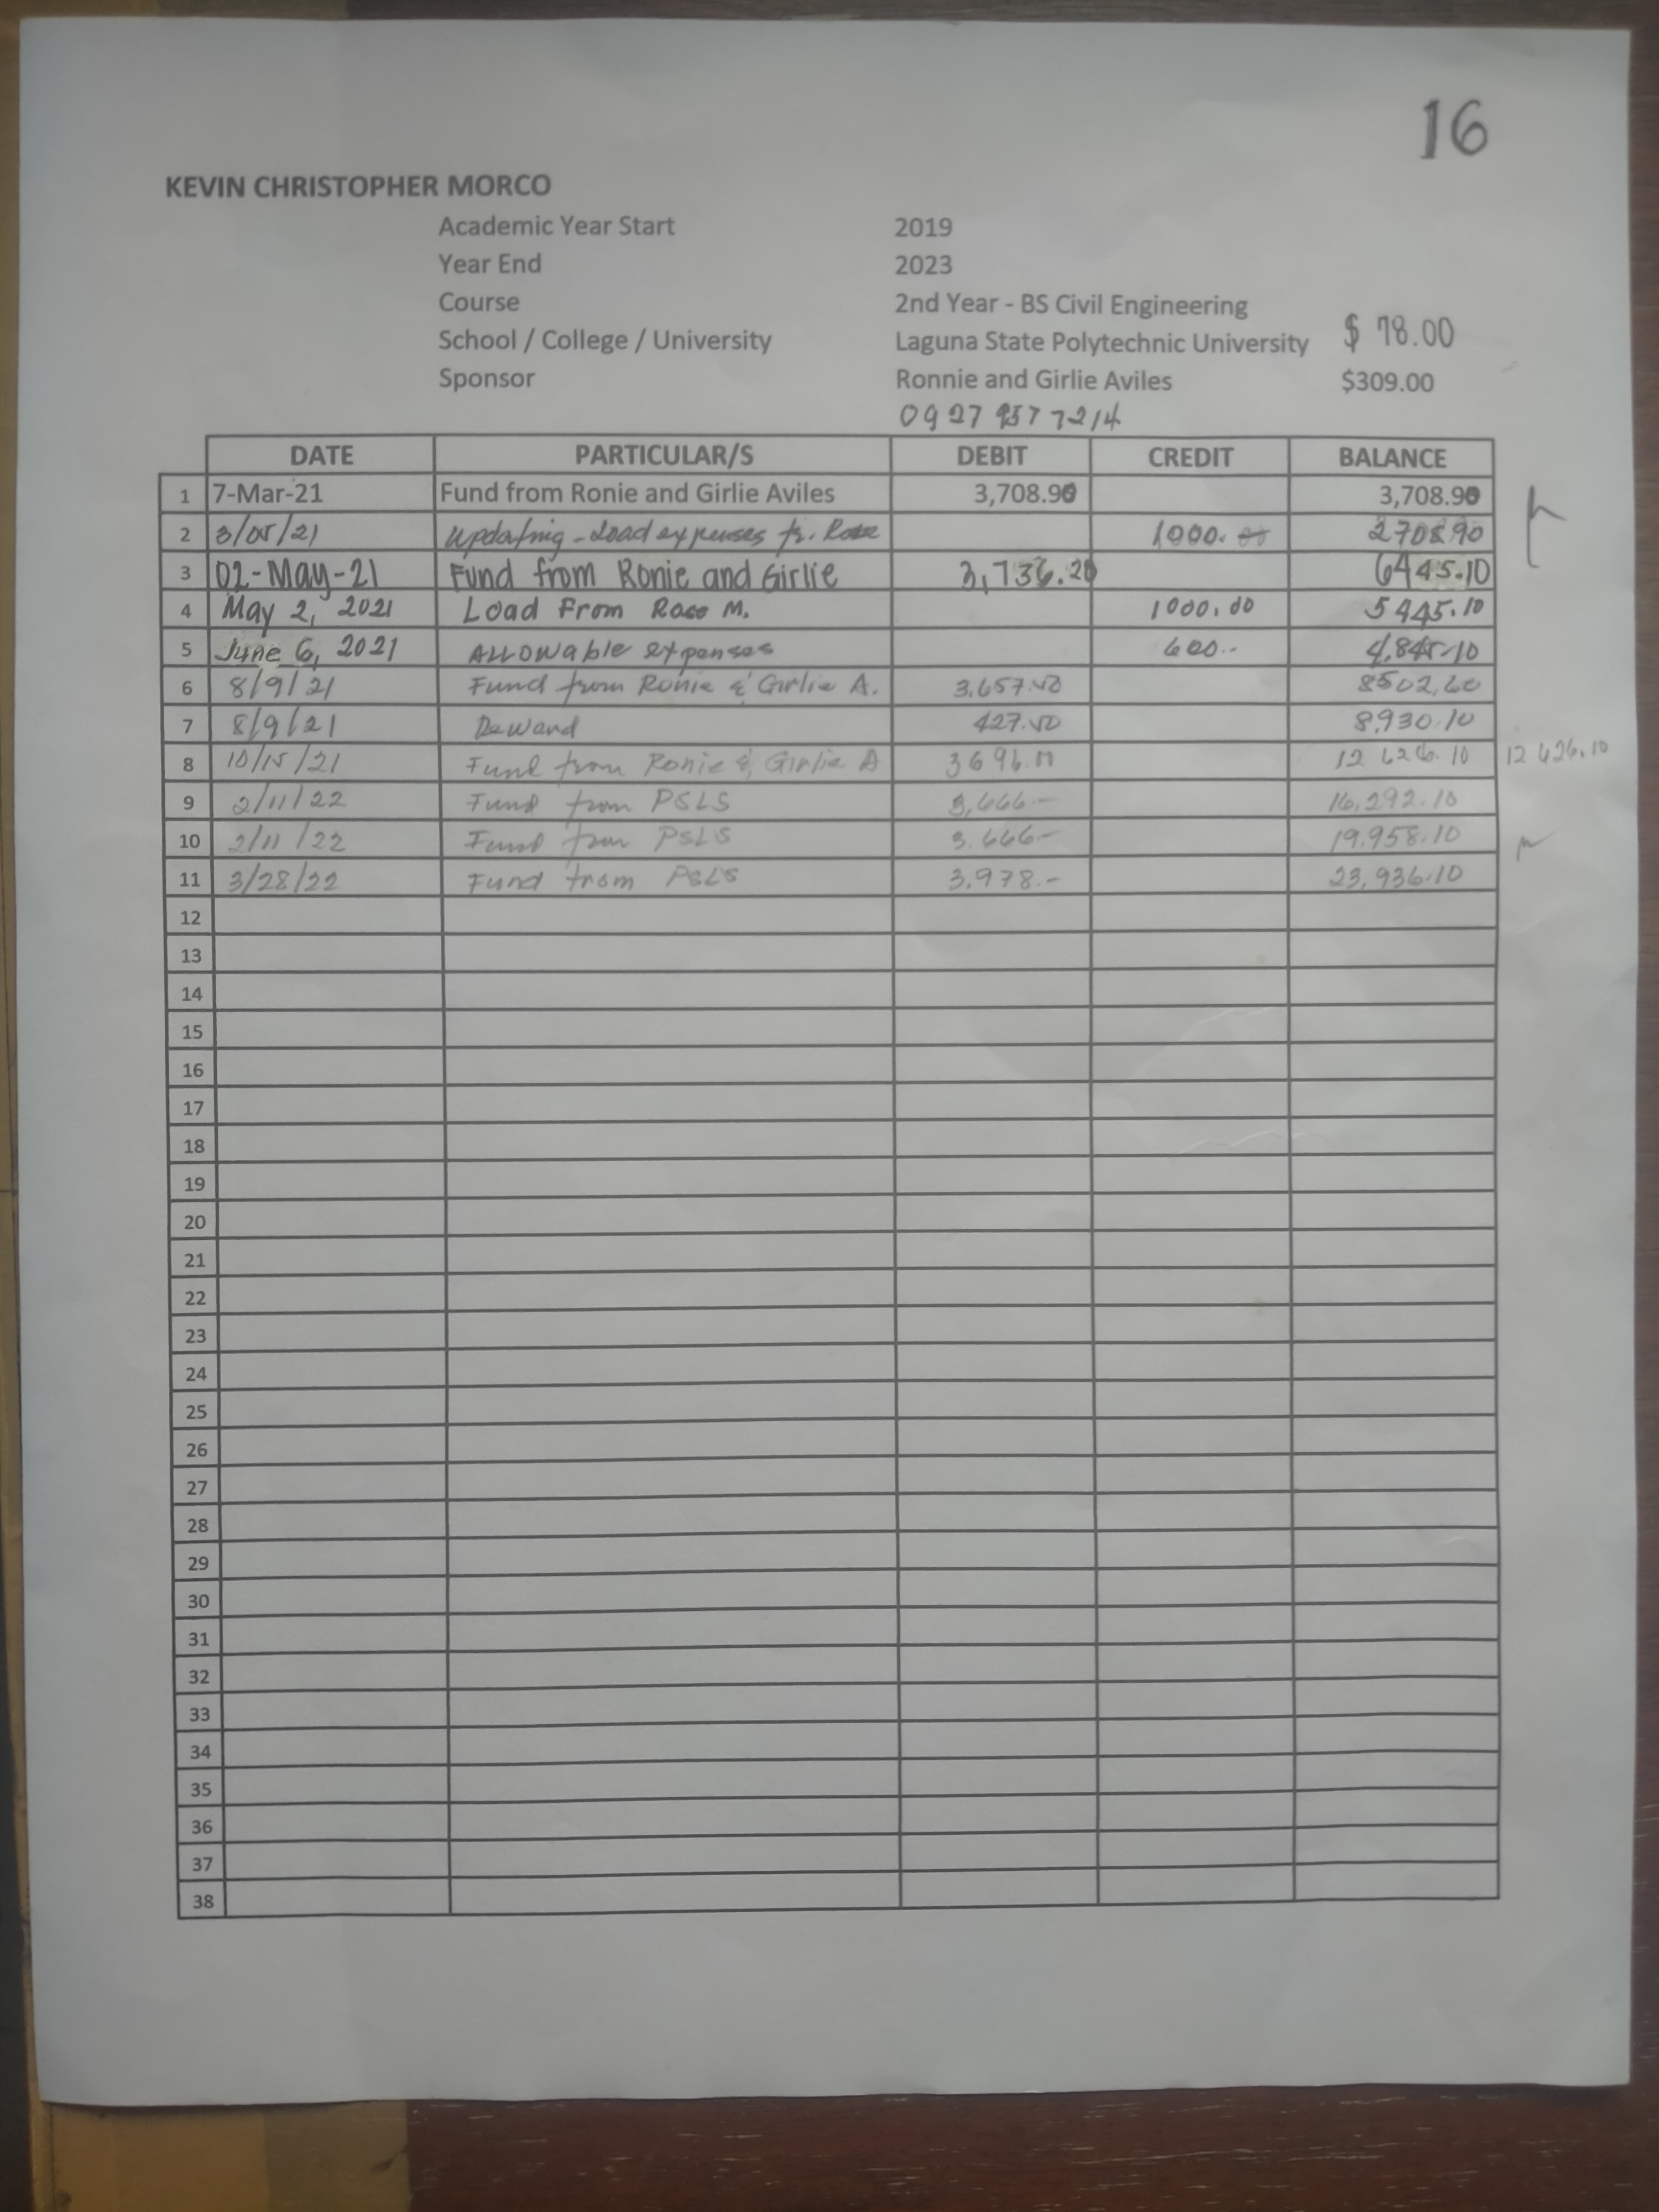 16
KEVIN CHRISTOPHER MORCO
Academic Year Start 2019
Year End 2023
Course 2nd Year - BS Civil Engineering
School / College / University Laguna State Polytechnic University $ 78.00
Sponsor Ronnie and Girlie Aviles $309.00
0927 957 7214
DATE PARTICULAR/S DEBIT CREDIT BALANCE
1 7-Mar-21 Fund from Ronie and Girlie Aviles 3,708.90 3,708.90
2 3/05/21 Updating - Load expenses fr. Rose 1000. 2708.90
3 02-May-21 Fund from Ronie and Girlie 3,736.20 6445.10
4 May 2, 2021 Load From Rose M. 1000.00 5445.10
5 June 6, 2021 Allowable expenses 600.- 4,845.10
6 8/9/21 Fund from Ronie & Girlie A. 3,657.50 8502.60
7 8/9/21 427.50 8,930.10
8 10/15/21 Fund from Ronie & Girlie A 3696.00 12 626.10 12 626.10
9 2/11/22 Fund from PSLS 3,666.- 16,292.10
10 2/11/22 Fund from PSLS 3.666- 19,958.10
11 3/28/22 Fund from PSLS 3,978.- 23,936.10
12
13
14
15
16
17
18
19
20
21
22
23
24
25
26
27
28
29
30
31
32
33
34
35
36
37
38